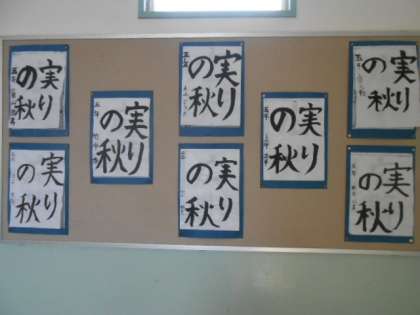 実り
の秋
実り
の秋
実り
の秋
実り
の秋
実り
の秋
実り
の秋
実り
の秋
実り
の秋